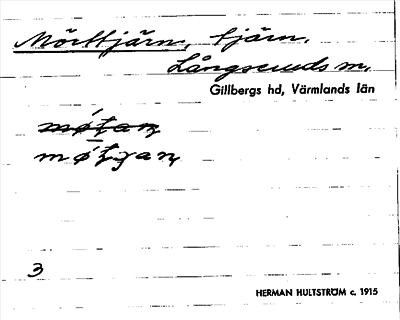 Mörttjärn, tjärn.
Långseruds sn.
Gillbergs hd, Värmlands län
mǿt̨an̨
mǿt̨ɟan̨
3
HERMAN HULTSTRÖM c. 1915